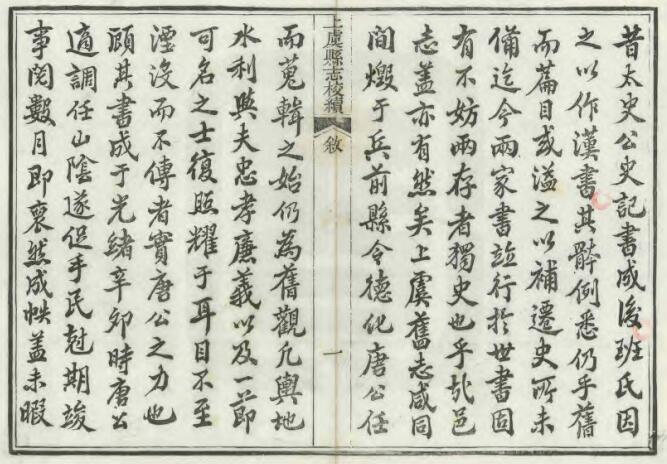 昔太史公史記書成後班氏因
之以作漢書其骵例悉仍乎舊
而篇目或溢之以補遷史所未
備迄今兩家書竝行於世書固
有不妨兩存者獨史也乎哉邑
志盖亦有然矣上虞舊志咸同
間燬于兵前縣令德化唐公任
上虞縣志校續
敘
一
而蒐輯之始仍為舊觀凡輿地
水利與夫忠孝廉義以及一莭
可名之士復照耀于耳目不至
湮沒而不傳者實唐公之力也
顧其書成于光緒辛卯時唐公
適調任山陰遂促手民尅期竣
事閱數月即裒然成帙盖未暇